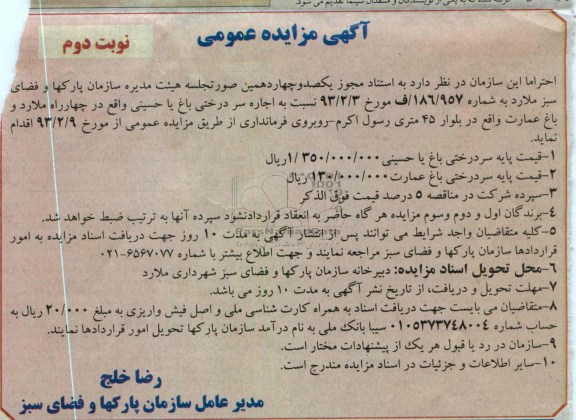 آگهی مزایده عمومی
نوبت دوم
احتراما این سازمان در نظر دارد به استناد مجوز یکصدوچهاردهمین صورتجلسه هیئت مدیره سازمان پارکها و فضای
سبز ملارد به شماره ۱۸۶/۹۵۷/ف مورخ ۹۳/۲/۳ نسبت به اجاره سر درختی باغ یا حسینی واقع در چهارراه ملارد و
باغ عمارت واقع در بلوار ۴۵ متری رسول اکرم-روبروی فرمانداری از طریق مزایده عمومی از مورخ ۹۳/۲/۹ اقدام
نماید.
۱-قیمت پایه سردرختی باغ یا حسینی ۱/۳۵۰/۰۰۰/۰۰۰ریال
۲-قیمت پایه سردرختی باغ عمارت ۱۳۰/۰۰۰/۰۰۰ ریال
۳-سپرده شرکت در مناقصه ۵ درصد قیمت فوق الذکر
۴-برندگان اول و دوم وسوم مزایده هر گاه حاضر به انعقاد قراردادنشود سپرده آنها به ترتیب ضبط خواهد شد.
۵-کلیه متقاضیان واجد شرایط می توانند پس از انتشار آگهی به مدت ۱۰ روز جهت دریافت اسناد مزایده به امور
قراردادها سازمان پارکها و فضای سبز مراجعه نمایند و جهت اطلاع بیشتر با شماره ۶۵۶۷۰۷۷-۰۲۱
۶-محل تحویل اسناد مزایده: دبیرخانه سازمان پارکها و فضای سبز شهرداری ملارد
۷-مهلت تحویل و دریافت، از تاریخ نشر آگهی به مدت ۱۰ روز می باشد.
۸-متقاضیان می بایست جهت دریافت اسناد به همراه کارت شناسی ملی و اصل فیش واریزی به مبلغ ۲۰/۰۰۰ ریال به
حساب شماره ۰۱۰۵۳۷۳۷۴۸۰۰۴ سیبا بانک ملی به نام درآمد سازمان پارکها تحویل امور قراردادها نمایند.
۹-سازمان در رد یا قبول هر یک از پیشنهادات مختار است.
۱۰-سایر اطلاعات و جزئیات در اسناد مزایده مندرج است.
رضا خلج
مدیر عامل سازمان پارکها و فضای سبز